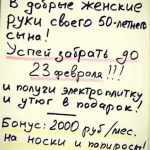 В добрые женские
руки своего 50-летнего
сына!
Успей забрать до
23 февраля!!!
и получи электроплитку
и утюг в подарок!
Бонус: 2000 руб/мес.
на носки и папиросы!